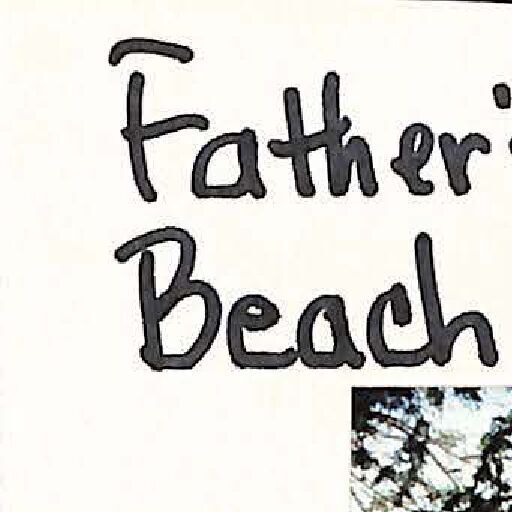 Father'
Beach